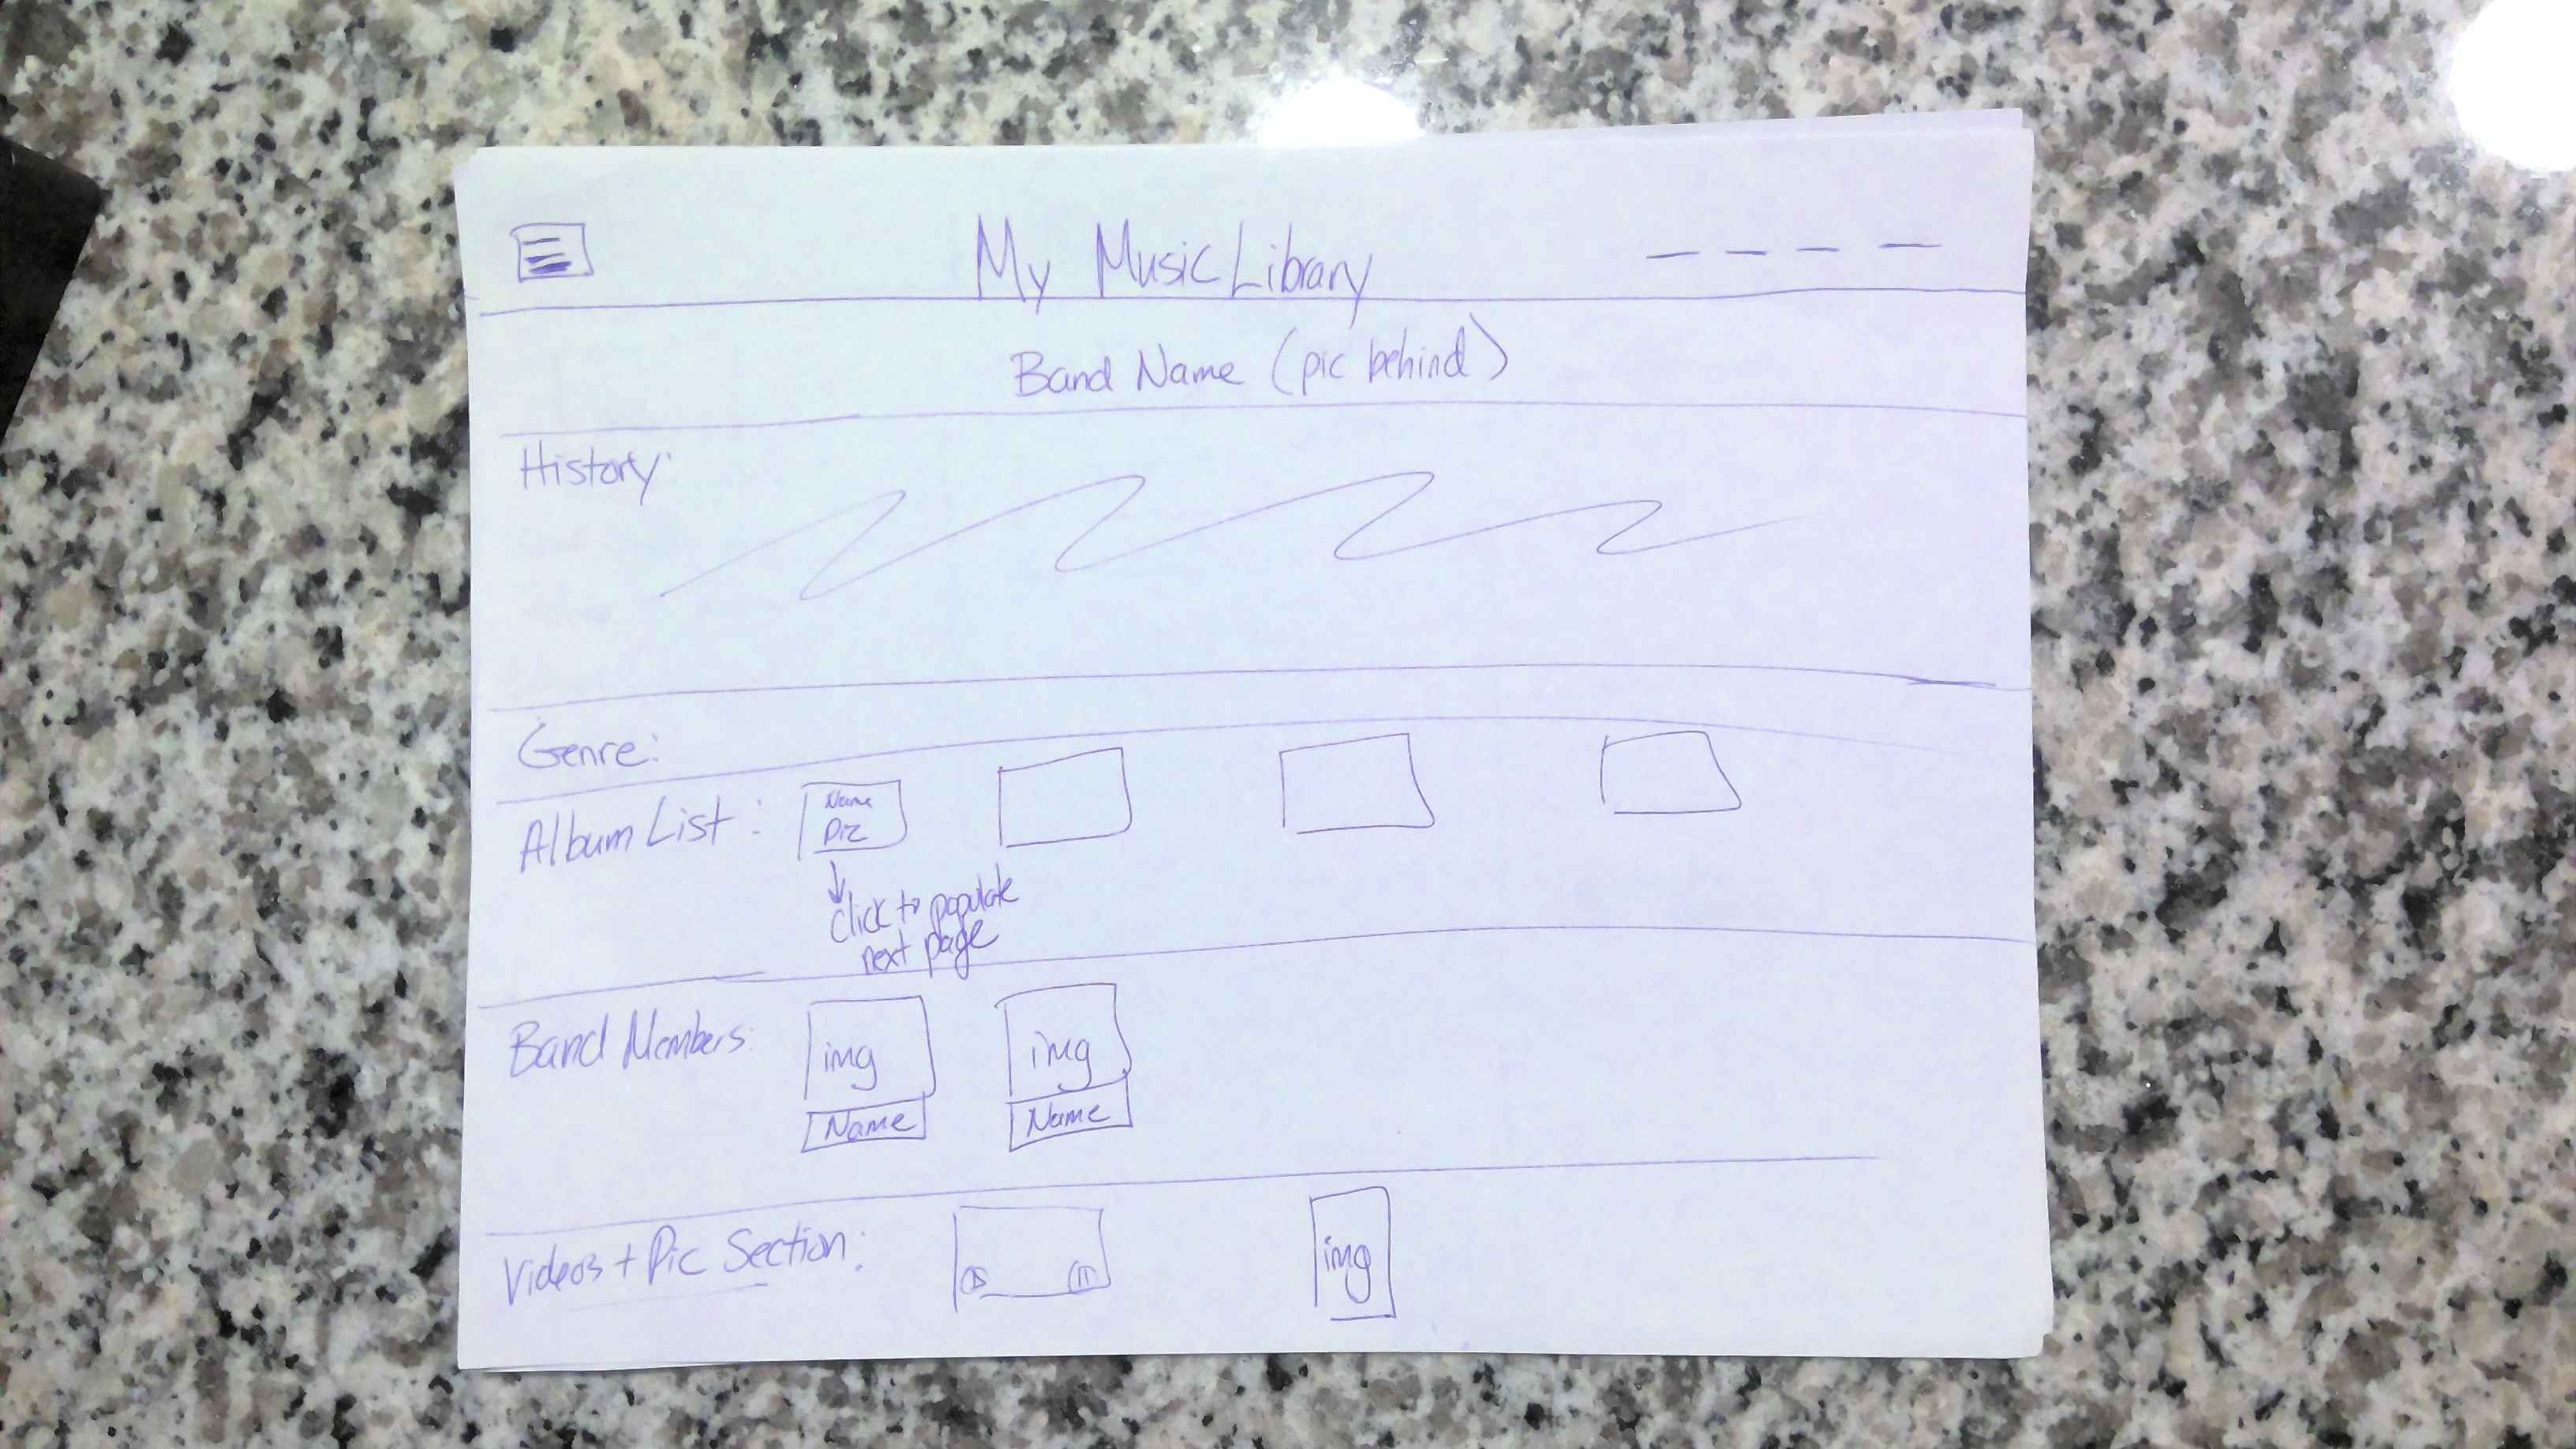 My Music Library
Band Name (pic behind)
History:
Genre:
Album List:
Name
Pic
Click to populate
next page
Band Members:
img
img
Name
Name
Videos + Pic Section:
img